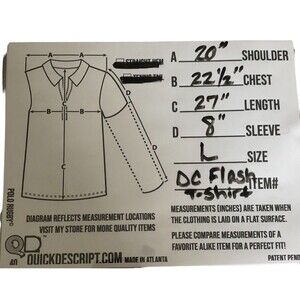 STRAIGHT HEM
A 20" SHOULDER
B 22 ½" CHEST
C 27" LENGTH
D 8" SLEEVE
L SIZE
DC Flash T-Shirt ITEM#
A
B
C
D
D
POLO RUGBY
DIAGRAM REFLECTS MEASUREMENT LOCATIONS
VISIT MY STORE FOR MORE MEASUREMENTS
QUICKDESCRIPT.COM MADE IN ATLANTA
MEASUREMENTS (INCHES) ARE TAKEN WHEN
THE CLOTHING IS LAID ON A FLAT SURFACE.
PLEASE COMPARE MEASUREMENTS OF A
FAVORITE ALIKE ITEM FOR A PERFECT FIT!
PATENT PEND